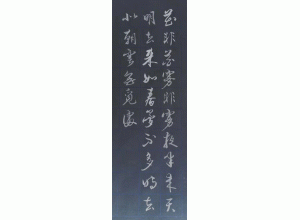 花非花雾非雾夜半来天
明去来如春梦不多时去
似朝云无觅处